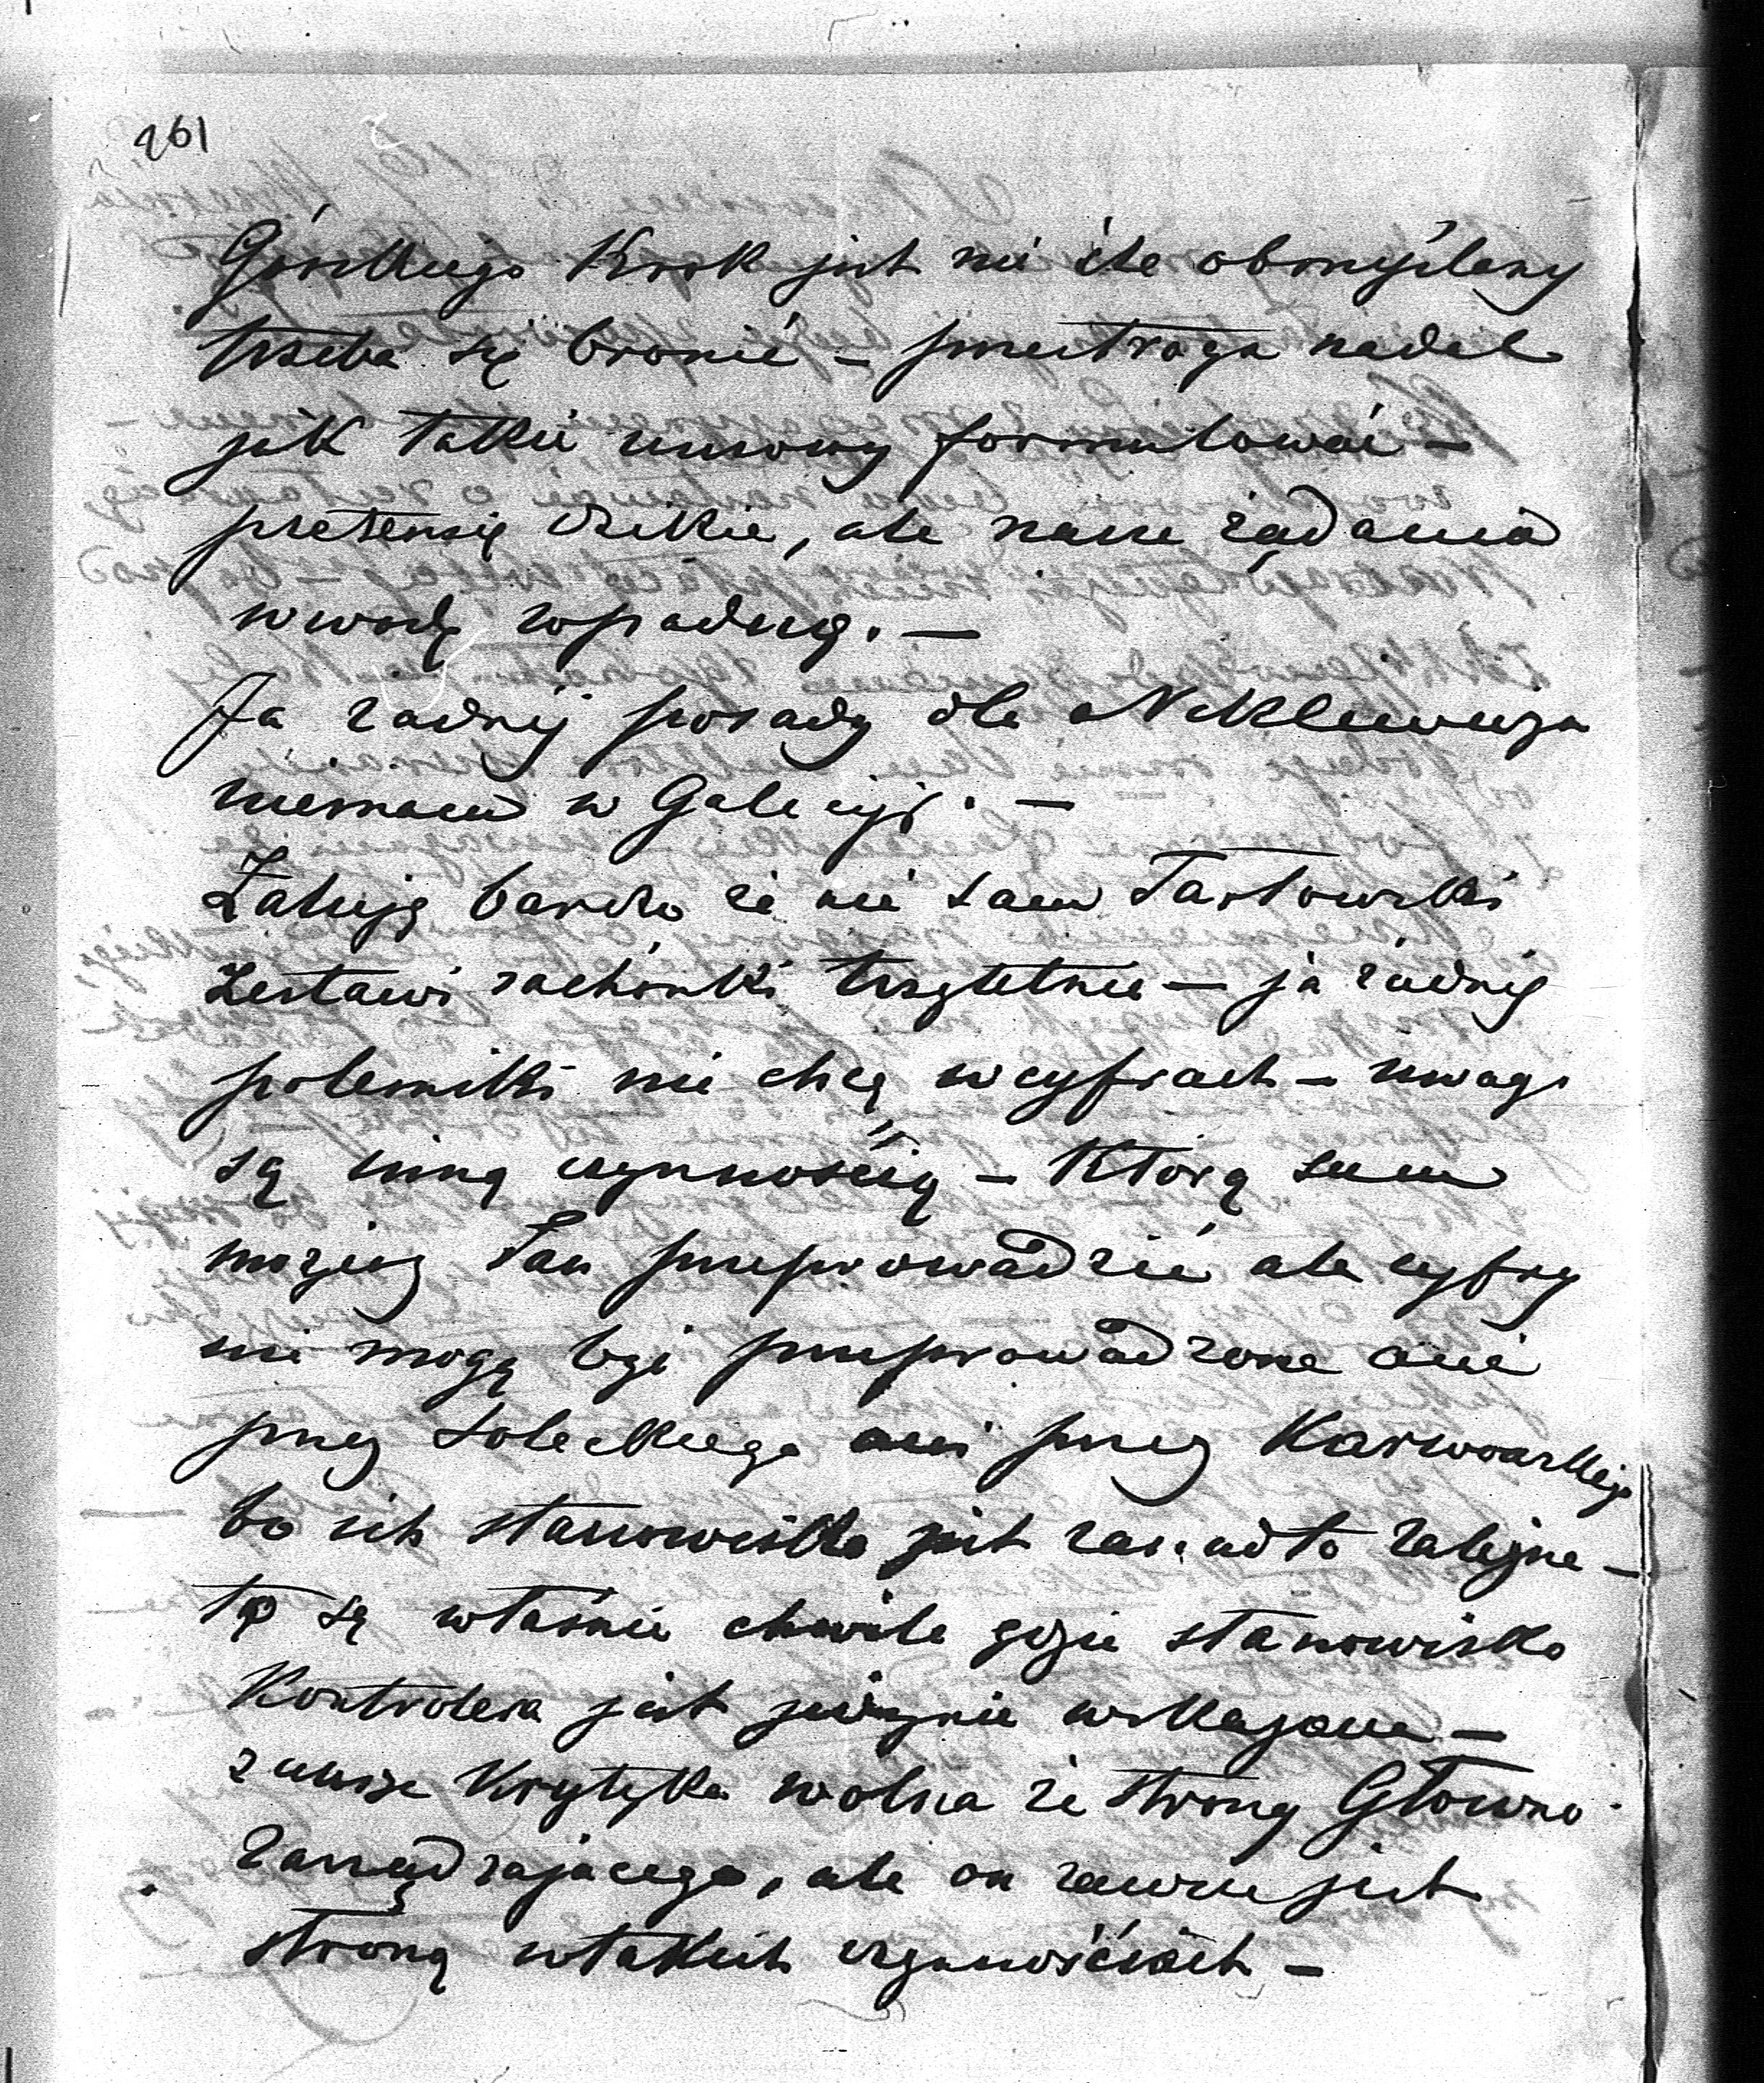 261
Górskiego Krok jest nie źle obmyślany
trzeba się bronić – przestroga nadal
jak takie umowy formułować –
pretensię dzikie, ale nasze żądania
w wodę wpadną. –
Ja żadnéj posady dla
niemam w Galicyi. –
Żałuję bardzo że nie sam Tarłowski
zestawi rachónki trzyletnie – ja żadnéj
polemiki nie chcę w cyfrach – uwagi
są inną czynnością – Którą sam
możesz Pan przeprowadzić ale cyfry
nie mogą być przeprowadzone ani
przez Soleckiego ani przez Karwowskiego
bo ich stanowisko jest zanadto zależne –
to są właśnie chwile gdzie stanowisko
Kontrolera jest jedynie wskazane –
zawsze Krytyka wolna ze strony Główno
Zarządzającego, ale on zawsze jest
stroną w takich czynnościach –